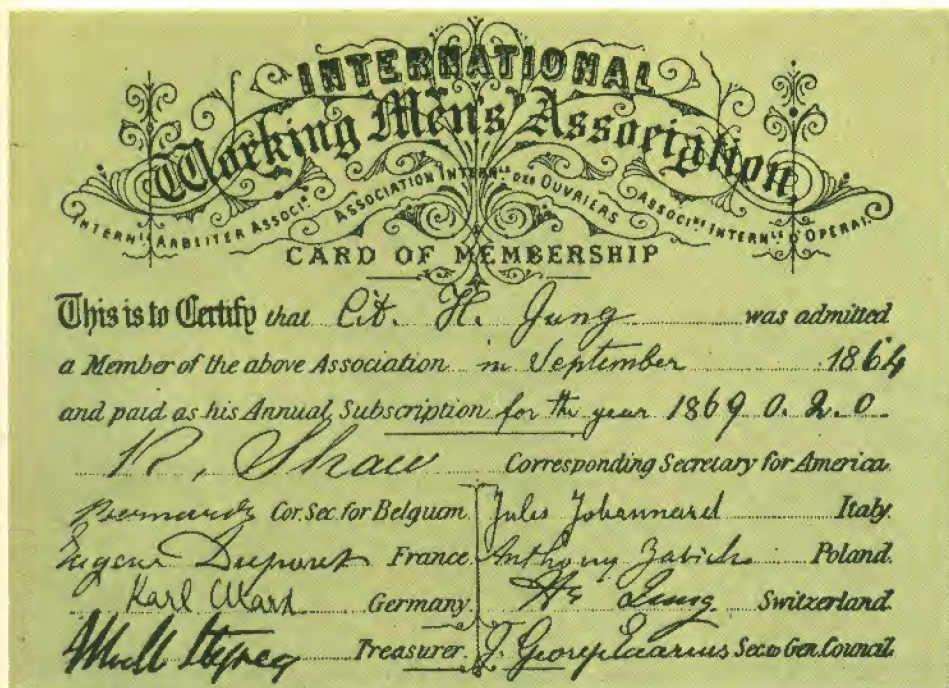 INTERNATIONAL
Working Men's Association
INTERN^LE ARBEITER ASSOC^N ASSOCIATION INTERN^LE DES OUVRIERS ASSOC^NE INTERN^LE D'OPERAI
CARD OF MEMBERSHIP
This is to Certify that Cit. H. Jung was admitted
a Member of the above Association in September 1864
and paid as his Annual Subscription for the year 1869 0. 2. 0.
R. Shaw Corresponding Secretary for America.
Bernard Cor. Sec. for Belgium. Jules Johannard Italy.
Eugene Dupont France. Anthony Zabicki Poland.
Karl Marx Germany. Hn Jung Switzerland.
Treasurer. J. George Eccarius Sec. to Gen. Council.